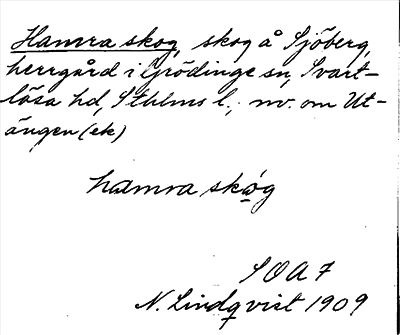 Hamra skog, skog å Sjöberg,
herrgård i Grödinge sn, Svart-
lösa hd, Sthlms l., nv. om Ut-
ängen (ek)
hamra skóg
SOA 7
N. Lindqvist 1909